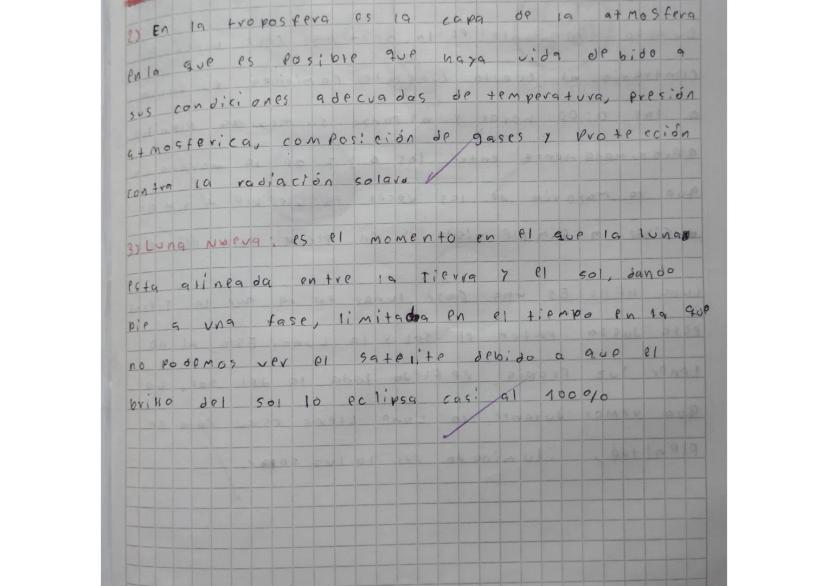 2) En la troposfera es la capa de la atmosfera
en la que es posible que haya vida debido a
sus condiciones adecuadas de temperatura, presión
atmosferica, composición de gases y protección
contra la radiación solar.
3) Luna Nueva: es el momento en el que la luna
esta alineada entre la Tierra y el sol, dando
pie a una fase, limitada en el tiempo en la que
no podemos ver el satelite debido a que el
brillo del sol lo eclipsa casi al 100%